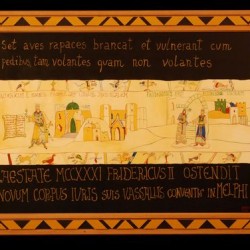 Set aves rapaces brancat et vulnerant cum
pedibus, tam volantes quam non volantes
AESTATE MCCXXXI FRIDERICUS II OSTENDIT
NOVUM CORPUS IURIS SUIS VASSALLIS CONVENTIS IN MELPHI